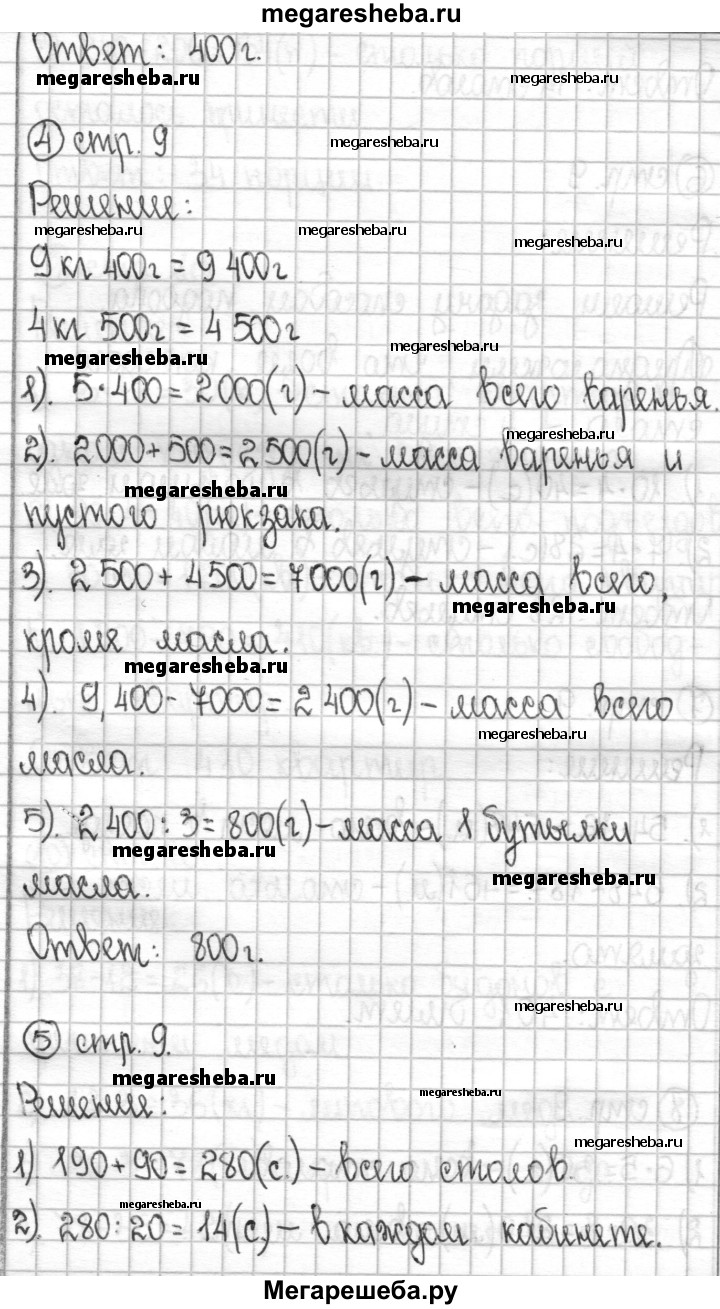 megaresheba.ru
Ответ: 400г.
megaresheba.ru megaresheba.ru
④ стр. 9 megaresheba.ru
Решение:
megaresheba.ru megaresheba.ru megaresheba.ru
9 кг 400г = 9 400г
4 кг 500г = 4 500г
megaresheba.ru megaresheba.ru
1). 5·400 = 2 000(г) – масса всего варенья.
megaresheba.ru
2). 2 000 + 500 = 2 500(г) – масса варенья и
megaresheba.ru
пустого рюкзака.
3). 2 500 + 4 500 = 7 000(г) – масса всего,
megaresheba.ru
кроме масла.
megaresheba.ru
4). 9 400 - 7000 = 2 400(г) – масса всего
megaresheba.ru
масла.
5). 2 400 : 3 = 800(г) – масса 1 бутылки
megaresheba.ru
масла. megaresheba.ru
Ответ: 800г.
megaresheba.ru
⑤ стр. 9.
megaresheba.ru megaresheba.ru
Решение:
megaresheba.ru
1) 190 + 90 = 280(с.) – всего столов.
megaresheba.ru
2). 280 : 20 = 14(с.) – в каждом кабинете.
Мегарешеба.ру